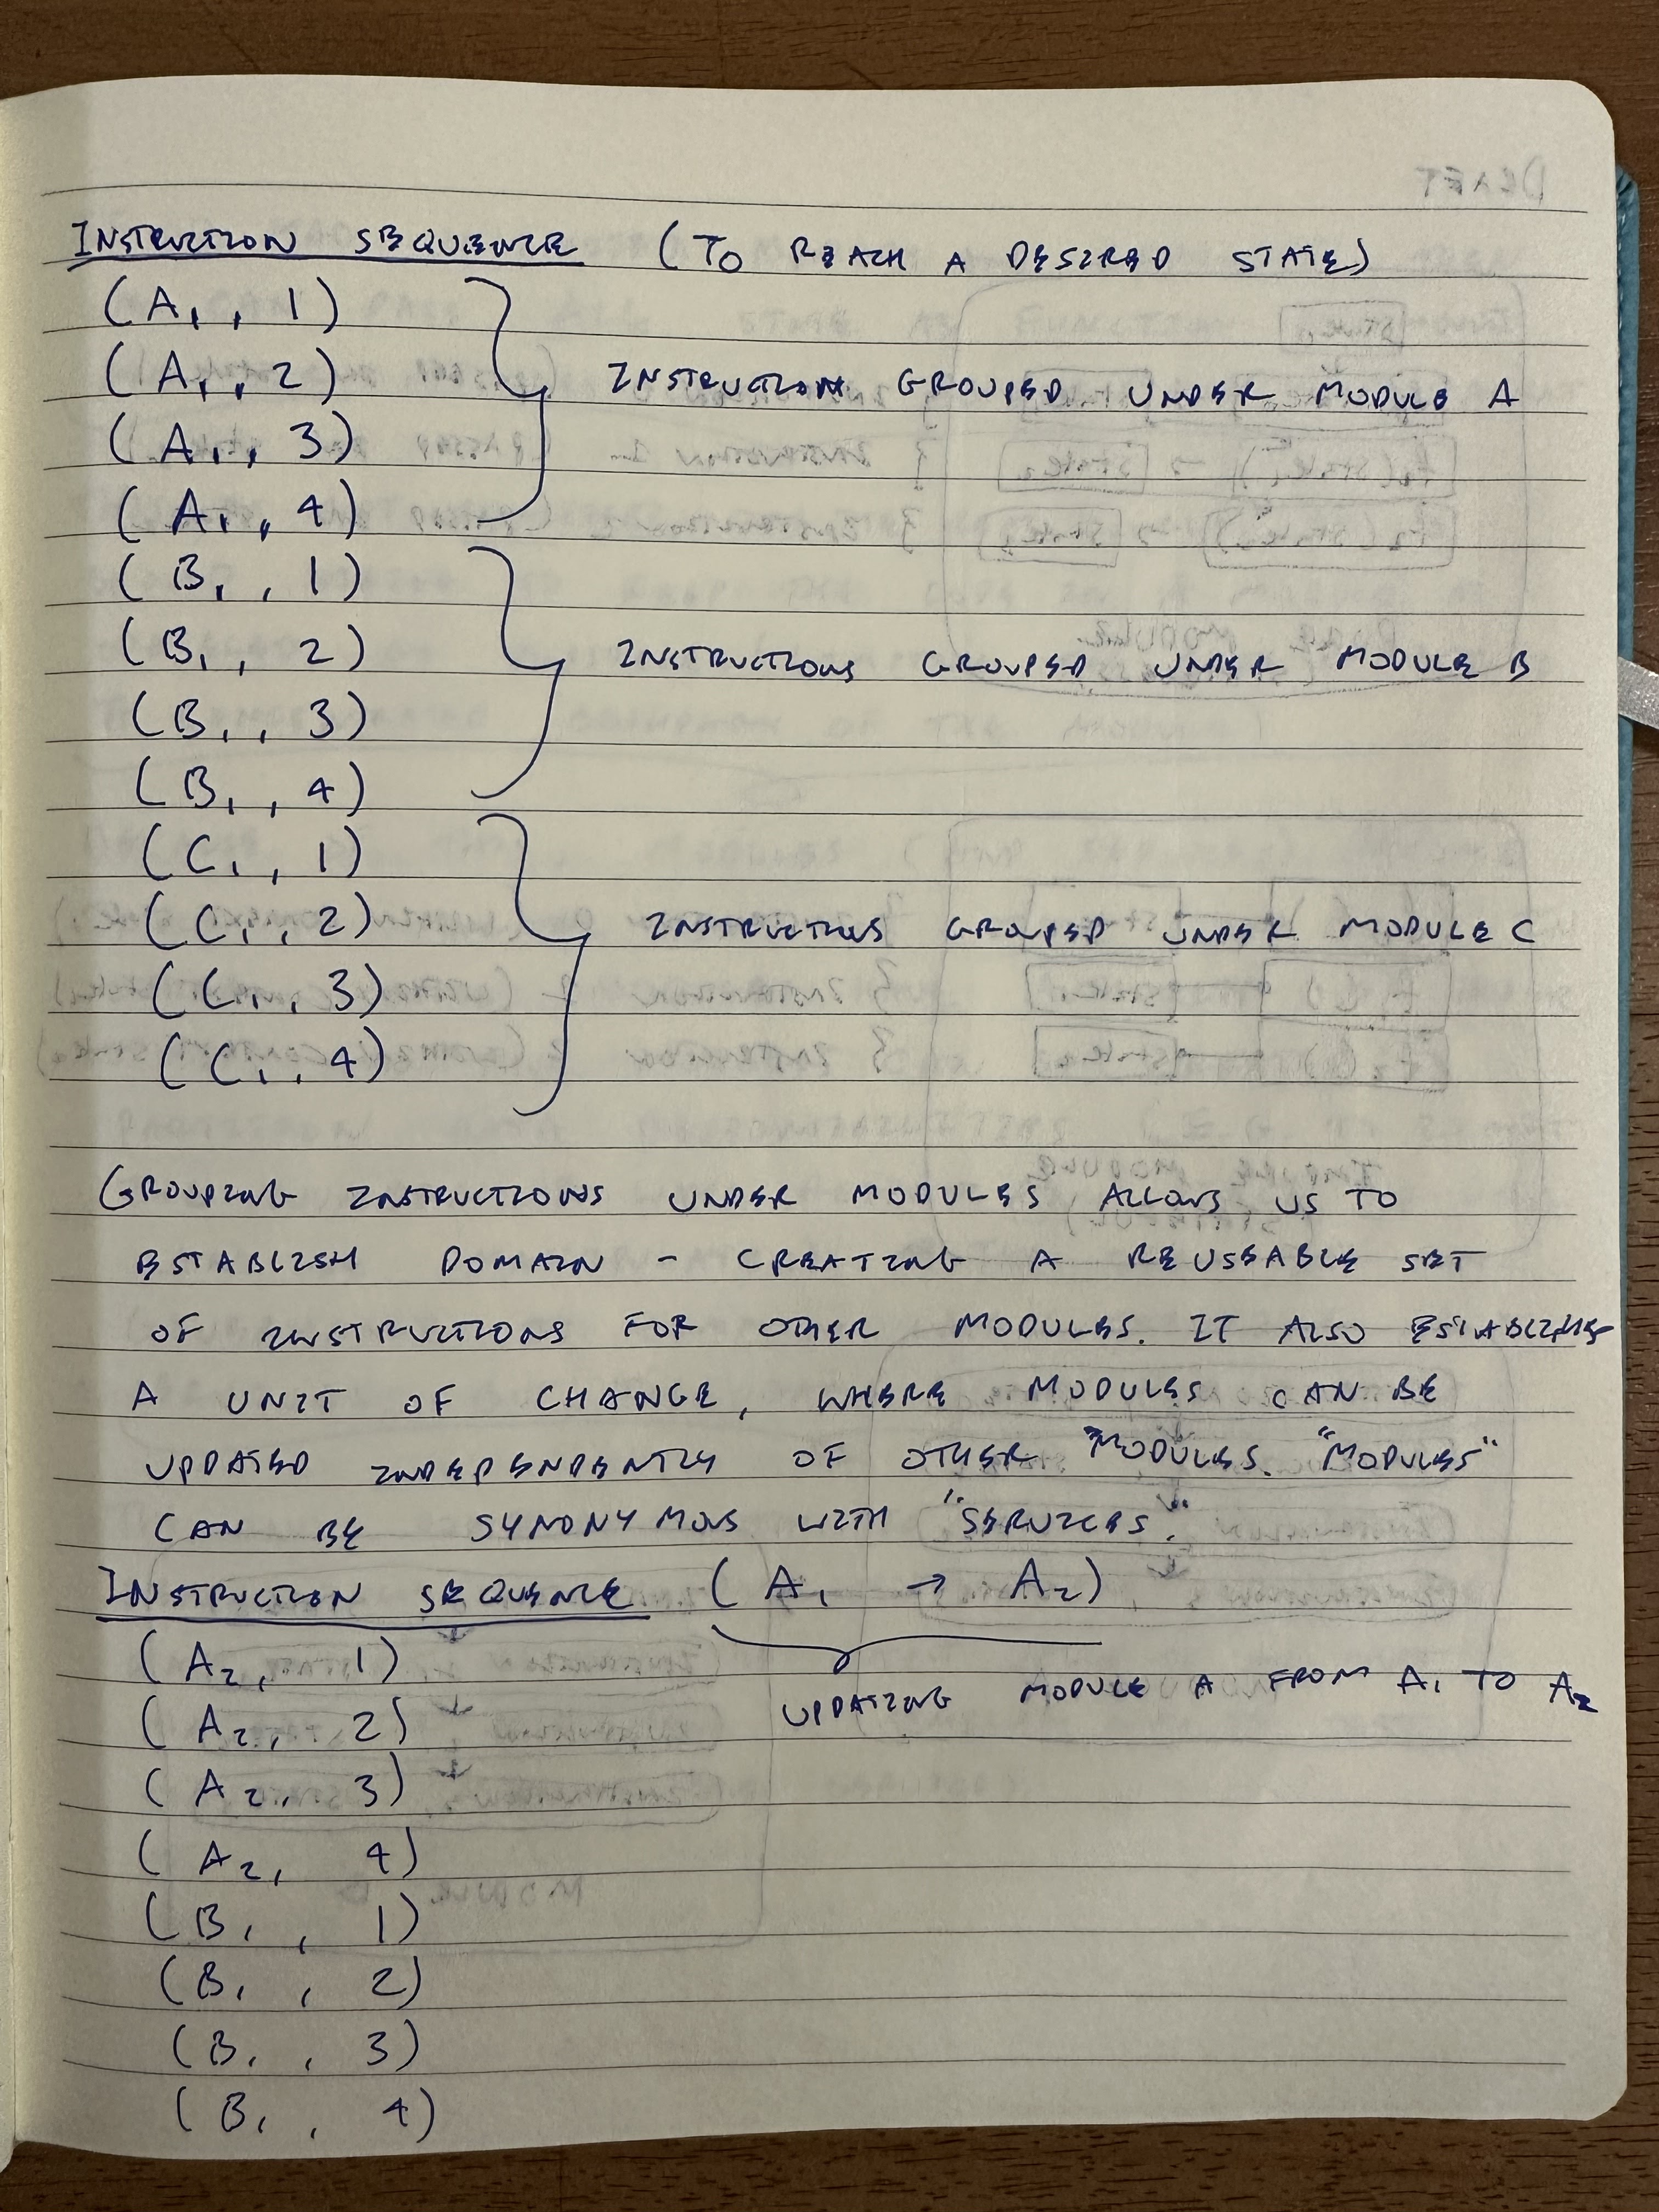 INSTRUCTION SEQUENCE (TO REACH A DESIRED STATE)
(A₁, 1)
(A₁, 2)
INSTRUCTIONS GROUPED UNDER MODULE A
(A₁, 3)
(A₁, 4)
(B₁, 1)
(B₁, 2)
INSTRUCTIONS GROUPED UNDER MODULE B
(B₁, 3)
(B₁, 4)
(C₁, 1)
(C₁, 2)
INSTRUCTIONS GROUPED UNDER MODULE C
(C₁, 3)
(C₁, 4)
GROUPING INSTRUCTIONS UNDER MODULES ALLOWS US TO
ESTABLISH DOMAIN - CREATING A REUSEABLE SET
OF INSTRUCTIONS FOR OTHER MODULES. IT ALSO ESTABLISHES
A UNIT OF CHANGE, WHERE MODULES CAN BE
UPDATED INDEPENDENTLY OF OTHER MODULES. "MODULES"
CAN BE SYNONYMOUS WITH "SERVICES."
INSTRUCTION SEQUENCE (A₁ → A₂)
(A₂, 1)
UPDATING MODULE A FROM A₁ TO A₂
(A₂, 2)
(A₂, 3)
(A₂, 4)
(B₁, 1)
(B₁, 2)
(B₁, 3)
(B₁, 4)